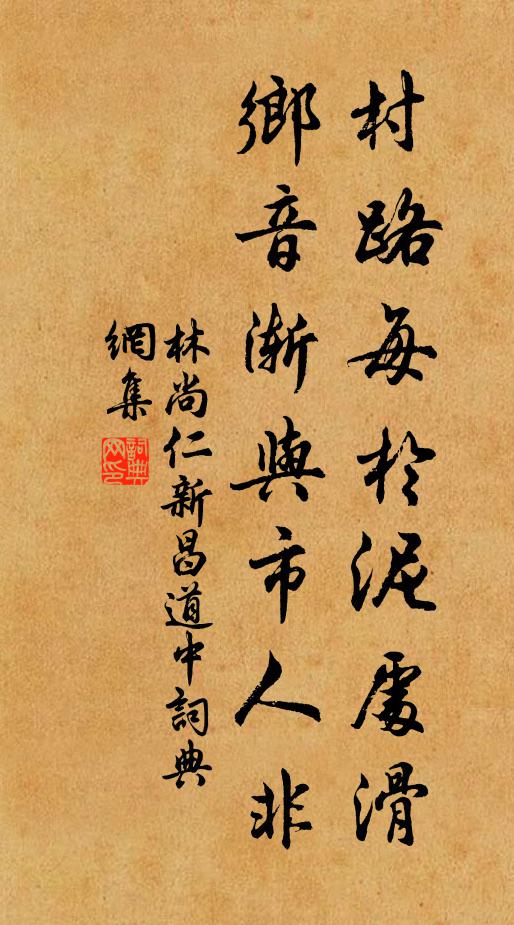 村路每於泥處滑
鄉音漸與市人非
林尚仁新昌道中詞典
網集
詞典网印